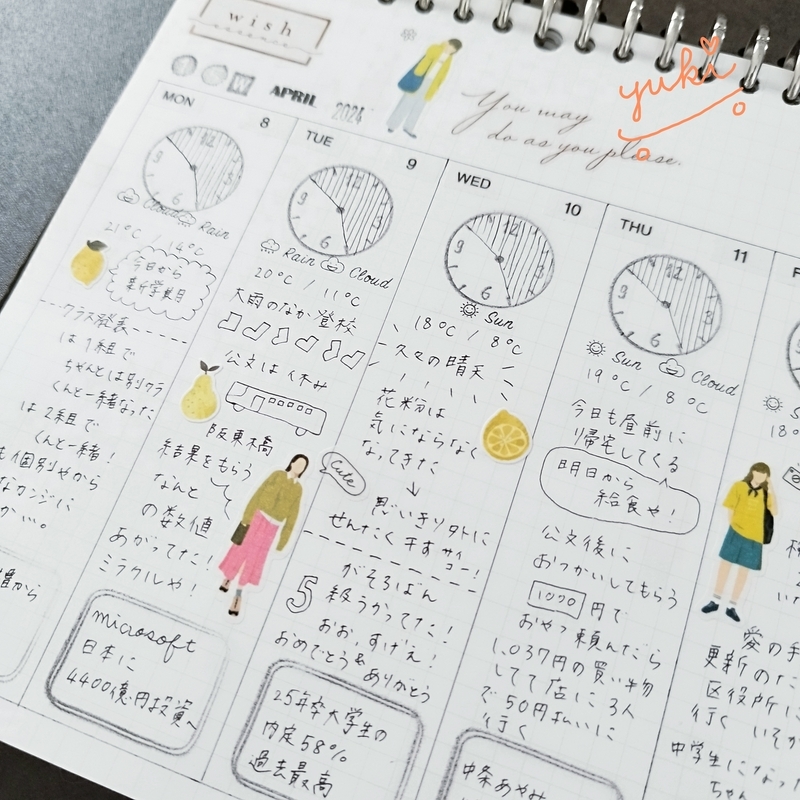 wish
W APRIL 2024
You may
do as you please.
yuki
MON 8
Cloud Rain
21°C / 14°C
今日から
新学期
クラス発表
は1組で
ちゃんとは別クラ
くんと一緒なった
は2組で
くんと一緒!
TUE 9
12
9
6
Rain Cloud
20°C / 11°C
大雨のなか登校
公文は休み
阪東橋
結果をもらう
なんと
の数値
あがってた!
ミラクルや!
microsoft
日本に
4400億円投資へ
WED 10
12
9
6
Sun
18°C / 8°C
久々の晴天
花粉は
気にならなく
なってきた
Cute
思いきりソトに
せんたく干す サイコー!
がそろばん
5級うかってた!
おお、すげえ!
おめでとう&ありがとう
25年卒大学生の
内定58%
過去最高
THU 11
12
9
6
Sun Cloud
19°C / 8°C
今日も昼前に
帰宅してくる
明日から
給食や!
公文後に
おつかいしてもらう
1000円で
おやつ頼んだら
1,037円の買い物
してて店に3人
で50円払いに
行く
中条あやみ
愛の手
更新のた
区役所に
行く いそが
中学生になった
ちゃん